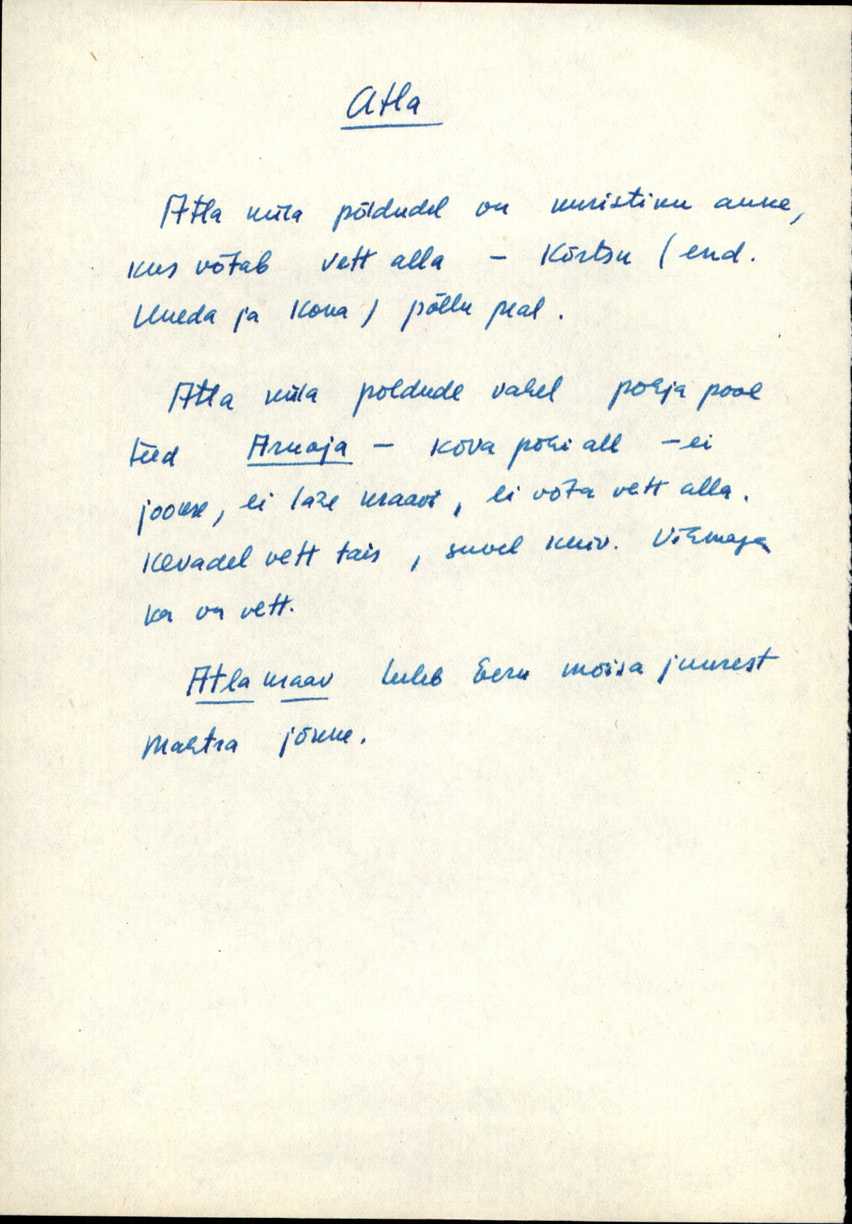 Atla
Atla küla põldudel on kuristiku auke,
kus võtab vett alla – Kõrtsu (end.
Uueda ja Kona) põllu peal.
Atla küla põldude vahel põhja pool
teed Aruoja – kõva põhi all – ei
jookse, ei lase kraavi, ei võta vett alla.
Kevadel vett täis, suvel kuiv. Vihmaga
ka on vett.
Atla kraav tuleb Eeru mõisa juurest
Mahtra jõkke.